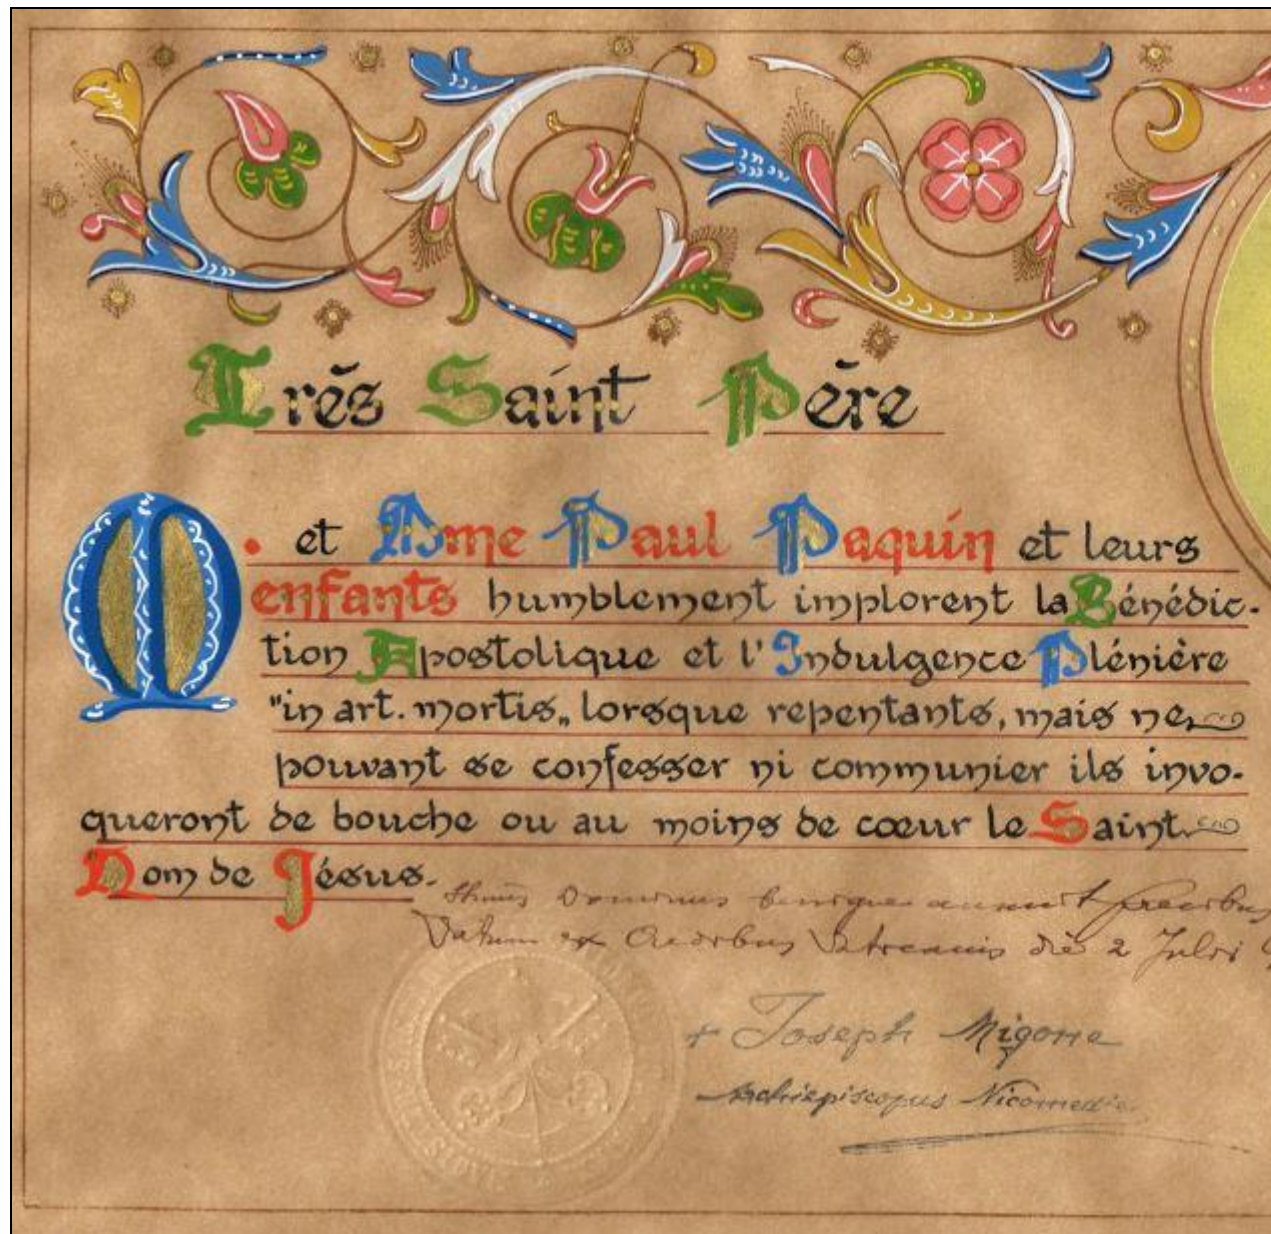 Très Saint Père
M. et Mme Paul Paquin et leurs
enfants humblement implorent la Bénédic-
tion Apostolique et l'Indulgence Plénière
"in art. mortis„ lorsque repentants, mais ne
pouvant se confesser ni communier ils invo-
queront de bouche ou au moins de cœur le Saint
Nom de Jésus.
Dominus benigne annuit precibus
Datum ex Aedibus Vaticanis die 2 Julii
+ Joseph Migone
Archiepiscopus Nicomedien.